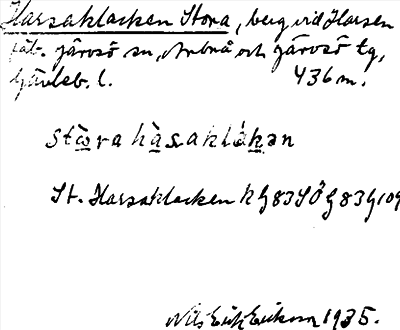 Harsaklacken Stora, berg vid Harsen
fäb. Järvsö sn, Arbrå och Järvsö tg,
Gävleb. l. 436 m.
stora hàsaklàkən
St. Harsaklacken K G 83 SÖ G 83 G 109
Nils Erik Erikson 1935.